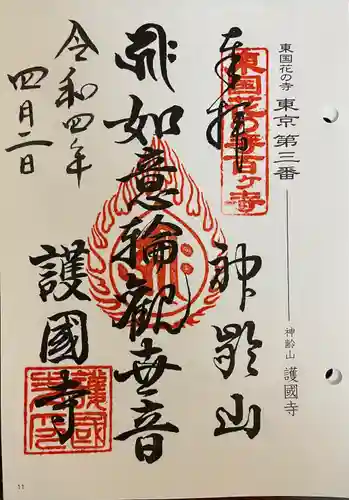 東国花の寺 東京 第三番
神齢山 護國寺
奉拝
東国花の寺百ヶ寺
神齢山
如意輪観世音
護國寺
令和四年
四月二日
11